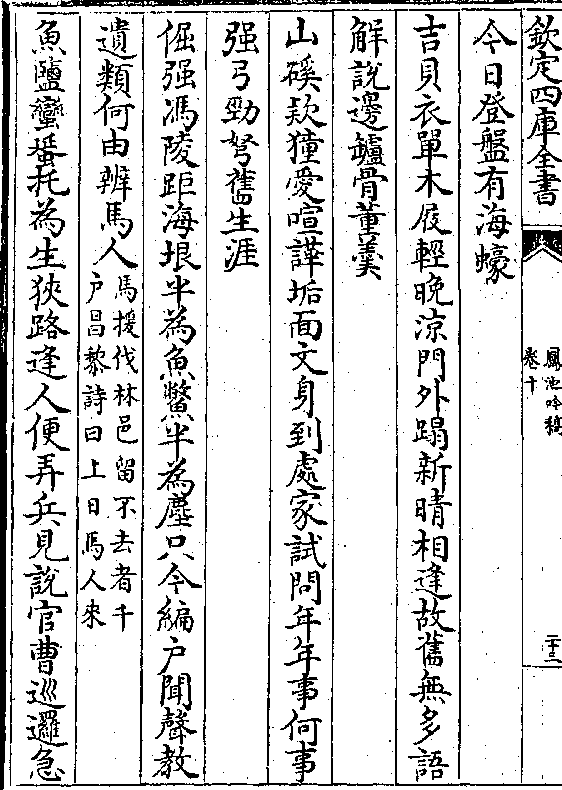 欽定四庫全書
鳳池吟稿
卷十
二十三
今日登盤有海蠔
吉貝衣單木屐輕晚涼門外蹋新晴相逢故舊無多語
解說邊鑪骨董羹
山磎欵獞愛喧譁垢面文身到處家試問年年事何事
强弓勁弩舊生涯
倔强馮陵距海垠半為魚鱉半為塵只今編户聞聲教
遺類何由辨馬人馬援伐林邑留不去者千
户昌黎詩曰上日馬人來
魚鹽蠻蜑托為生狹路逢人便弄兵見說官曹巡邏急